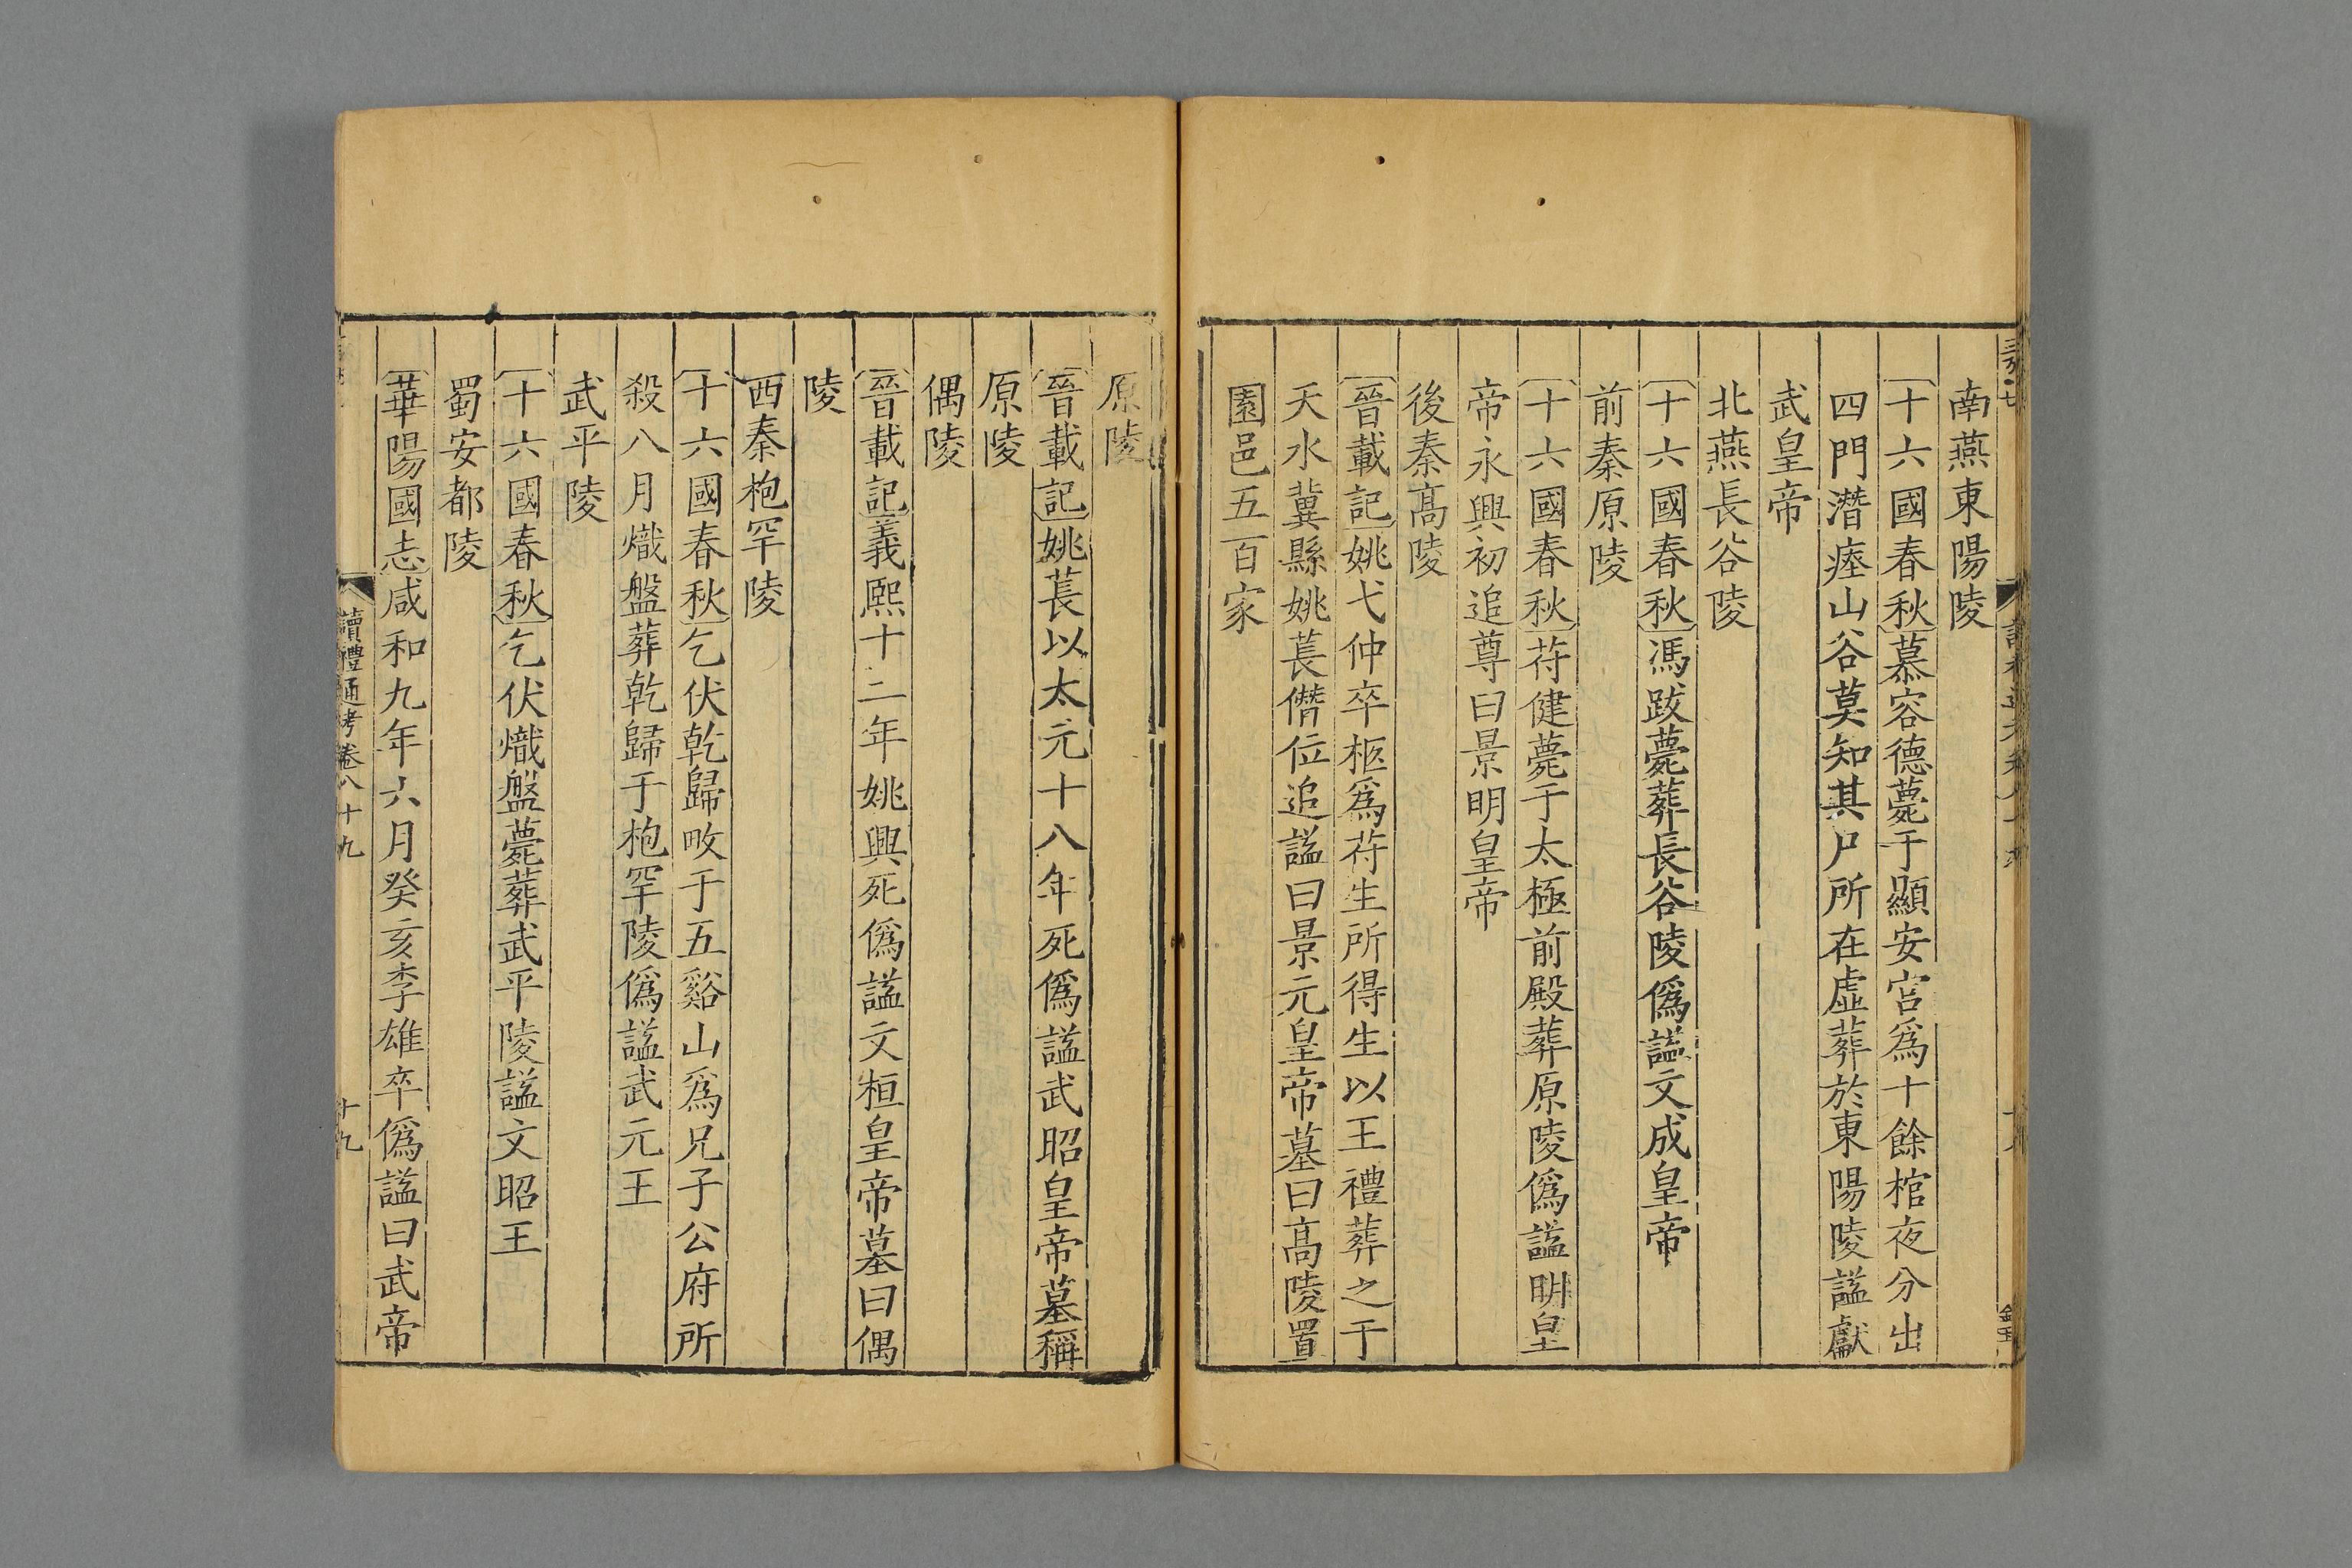 南燕東陽陵
十六國春秋慕容德薨于顯安宮爲十餘棺夜分出
四門潛瘞山谷莫知其尸所在虛葬於東陽陵謚獻
武皇帝
北燕長谷陵
十六國春秋馮跋薨葬長谷陵僞謚文成皇帝
前秦原陵
十六國春秋苻健薨于太極前殿葬原陵僞謚明皇
帝永興初追尊曰景明皇帝
後秦髙陵
晉載記姚弋仲卒柩爲苻生所得生以王禮葬之于
天水冀縣姚萇僭位追謚曰景元皇帝墓曰髙陵置
園邑五百家
原陵
晉載記姚萇以太元十八年死僞謚武昭皇帝墓稱
原陵
偶陵
晉載記義熙十二年姚興死僞謚文桓皇帝墓曰偶
陵
西秦枹罕陵
十六國春秋乞伏乾歸畋于五谿山爲兄子公府所
殺八月熾盤葬乾歸于枹罕陵僞謚武元王
武平陵
十六國春秋乞伏熾盤薨葬武平陵謚文昭王
蜀安都陵
華陽國志咸和九年六月癸亥李雄卒僞謚曰武帝
讀禮通考卷八十九
十九